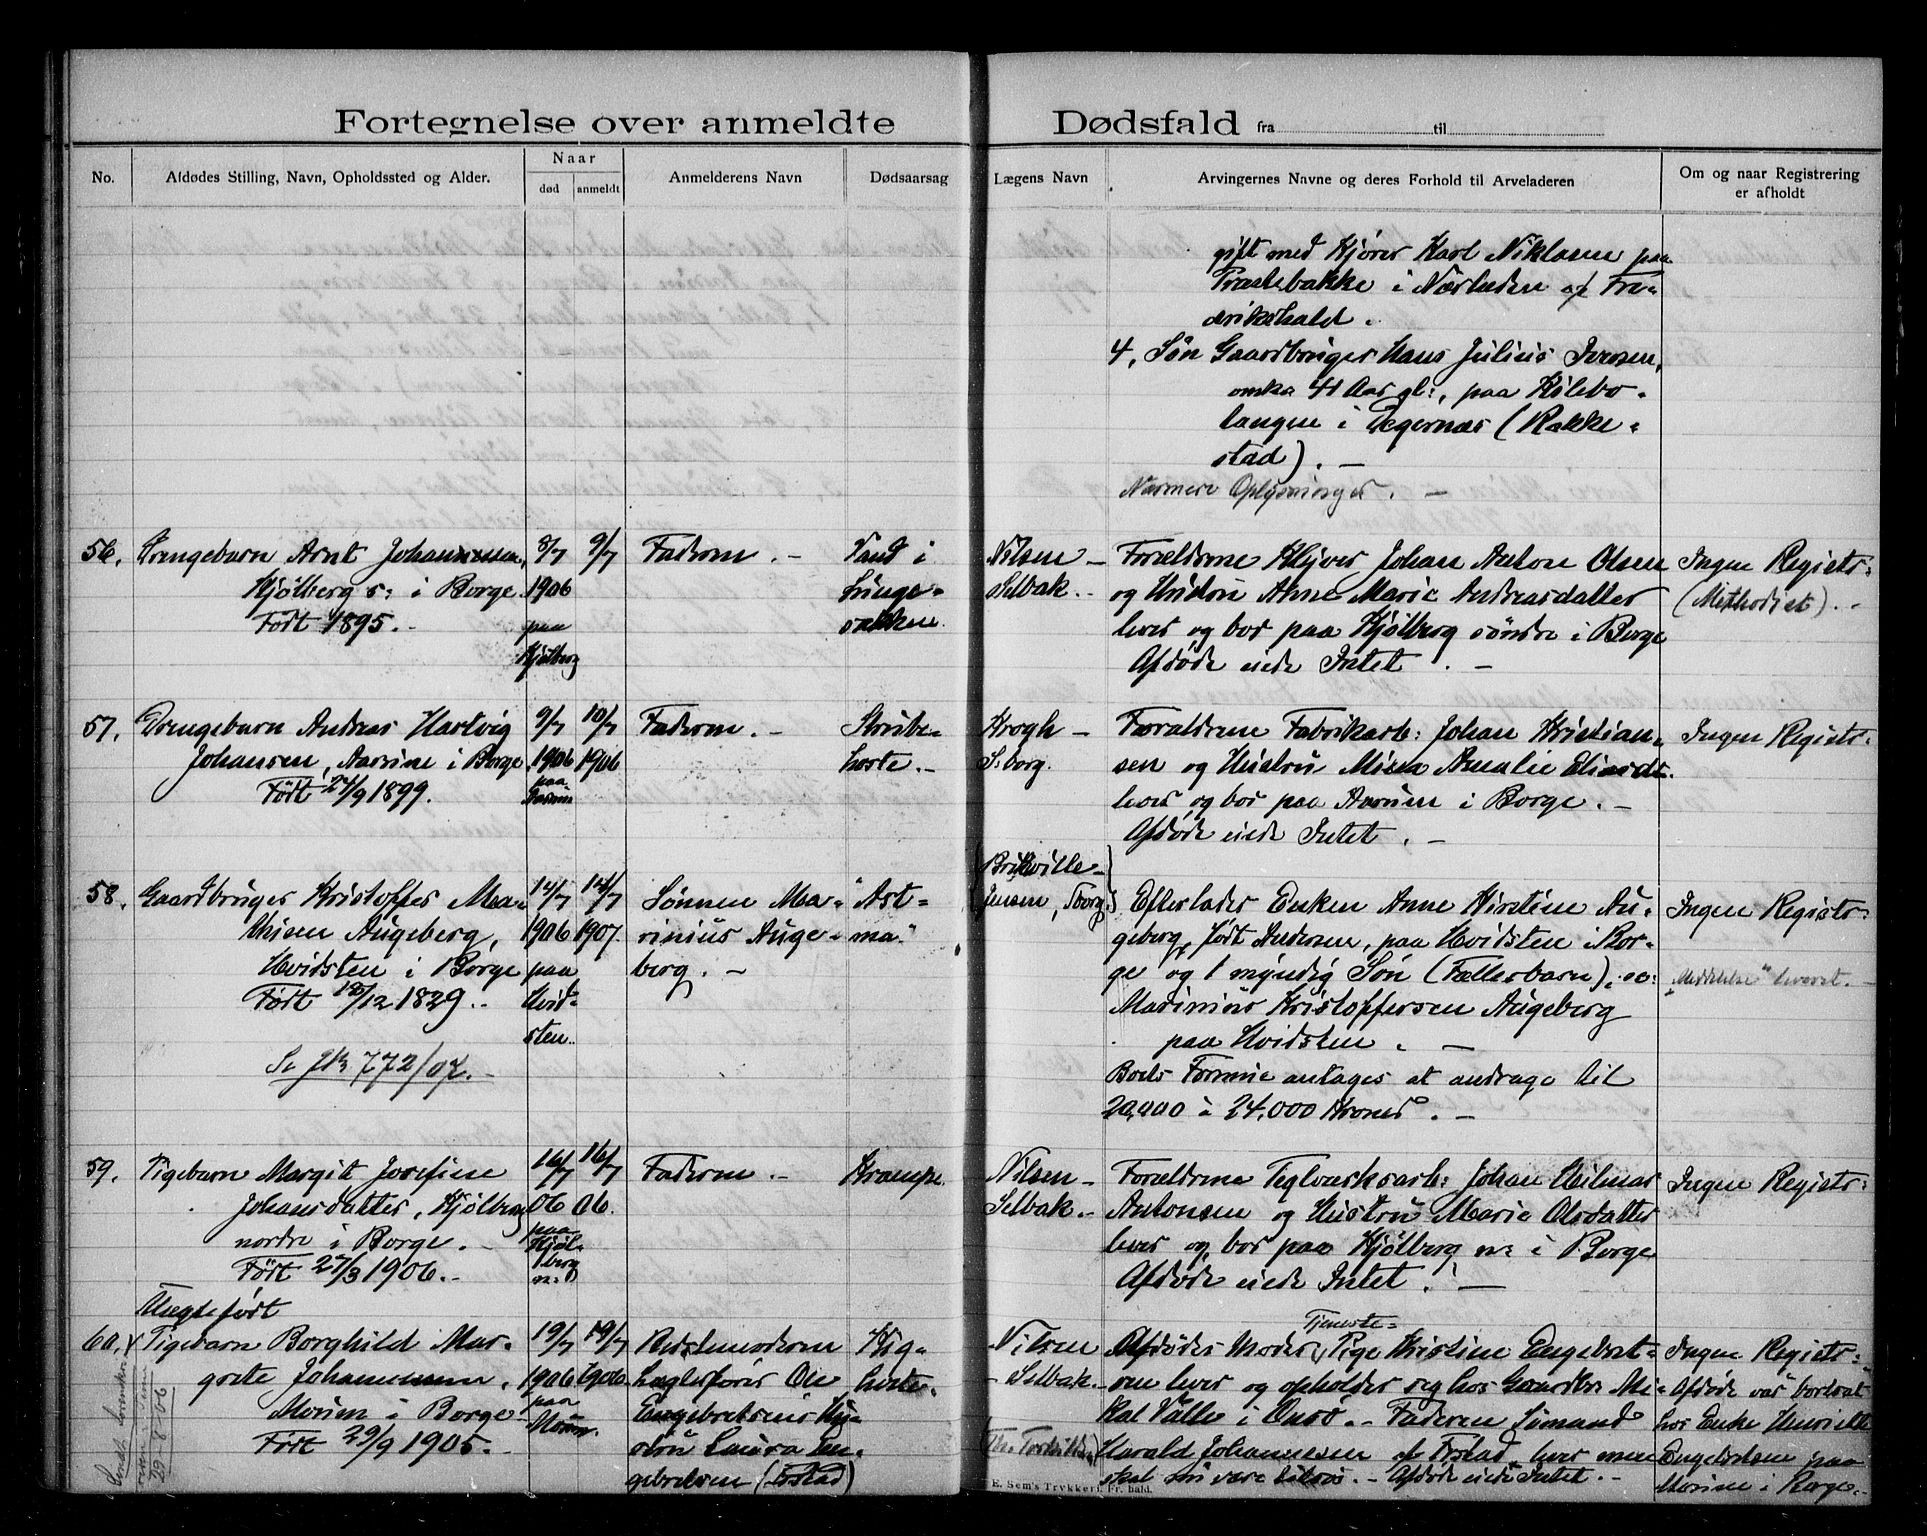 Fortegnelse over anmeldte Dødsfald fra til
No.
Afdødes Stilling, Navn, Opholdssted og Alder.
Naar
død
anmeldt
Anmelderens Navn
Dødsaarsag
Lægens Navn
Arvingernes Navne og deres Forhold til Arveladeren
Om og naar Registrering
er afholdt
gift med Kjører Karl Niklasen paa
Præstebakke i Nærheden af Fre-
drikshald.
4, Søn Gaardbruger Hans Julius Iversen,
omkr 41 Aar gl:, paa
langen i Degernæs (Rakke-
stad). —
Nærmere Oplysninger. —
56.
Drengebarn Arnt Johannessen,
Kjølberg s: i Borge.
Født 1895. -
8/7
1906
paa
Kjølberg
9/7
Faderen. -
Vand i
Lunge-
sækken.
Nilsen -
Selbak. -
Forældrene Johan Anton Olsen
og Hustru Anne Marie Andreasdatter
lever og bor paa Kjølberg søndre i Borge
Afdøde eiede Intet. —
Ingen Registr:
(Methodist). -
57.
Drengebarn Andreas Hartvig
Johansen, Aarum i Borge
Født 24/9 1899.
9/7
1906
paa
Aarum
10/7
1906
Faderen. -
Strube-
hoste. -
Krogh -
S:borg.
Forældrene Fabrikarb: Johan Kristian-
sen og Hustru Mina Amalie
lever og bor paa Aarum i Borge. -
Afdøde eiede Intet. -
Ingen Registr:
58.
Gaardbruger Kristoffer Ma-
thisen Augeberg,
Hvidsten i Borge
Født 18/12 1829. -
Se JK 772/07. -
14/7
1906
paa
Hvid-
sten.
14/7
1907.
Sønnen Ma-
rinius Auge-
berg. -
"Ast-
ma"
Jensen, Sborg
Efterlader Enken Anne Kirstine Au-
geberg, født Andersen, paa Hvidsten i Bor-
ge og 1 myndig Søn (Fællesbarn), :
Marinius Kristoffersen Augeberg
paa Hvidsten. —
Boets Formue antages at andrage til
20,000 à 24.000 Kroner. —
Ingen Registr:
"Meddelelse" -
59.
Pigebarn Margit Josefine
Johansdatter, Kjølberg
nordre i Borge. -
Født 27/3 1906. -
16/7
06
paa
Kjøl-
berg
n:
16/7
06.
Faderen. -
Krampe.
Nilsen -
Selbak. -
Forældrene Teglværksarb: Johan Hilmar
Antonsen og Hustru Marie Olsdatter
lever og bor paa Kjølberg n: i Borge
Afdøde eiede Intet. —
Ingen Registr:
Uægtefødt
60.
Pigebarn Borghild Mar-
grete Johannessen,
Moum i Borge
Født 29/9 1905. -
29-8-06
19/7
1906
paa
Moum.
19/7
1906
Ole
Engebretsens Hu-
stru Laura En-
gebretsen (Ørstad)
Kig-
hoste.
Nilsen
- Selbak. -
Tjeneste-
Afdødes Moder, Pige Kristine Engebret-
sen lever og opholder sig hos Gaardbr. Mi-
kal Valle i Onsø. - Faderen Simand
Harald Johannessen af Ørstad lever men
skal nu være tilsøs. - Afdøde eiede Intet. -
Ingen Registr:
Afdøde var bortsat
hos Enke Henriette
Engebretsen paa
Moum i Borge. -
E. Sem's Trykkeri, Fr. hald.